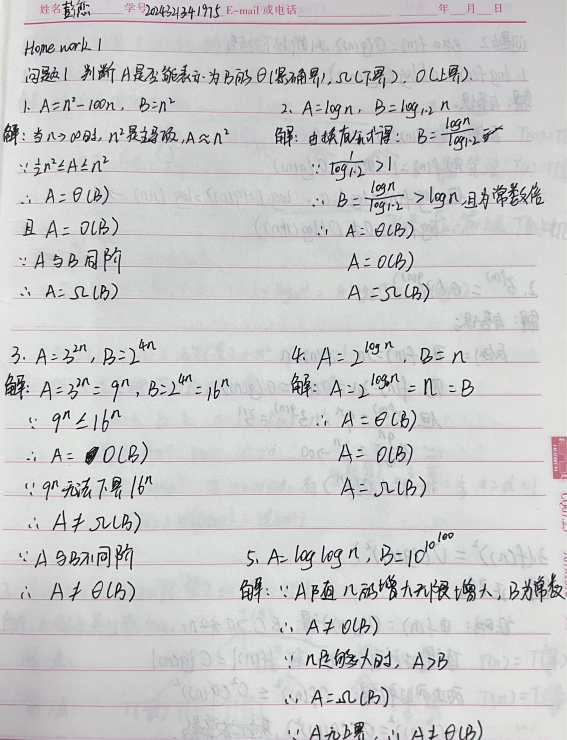 姓名 彭恋 学号 2024321341975 E-mail 或电话 年 月 日
Home work 1
问题1 判断A是否能表示为B的Θ(紧确界), Ω(下界), O(上界).
1. A=n²-100n, B=n²
解: 当n→∞时, n²是主导项, A≈n²
∵ ½n²≤A≤n²
∴ A=Θ(B)
且 A=O(B)
∵ A与B同阶
∴ A=Ω(B)
2. A=logn, B=log₁.₂ n
解: 由换底公式得: B=logn/log1.2
∵ 1/log1.2 >1
∴ B=logn/log1.2 >logn 且为常数倍
∴ A=Θ(B)
A=O(B)
A=Ω(B)
3. A=3²ⁿ, B=2⁴ⁿ
解: A=3²ⁿ=9ⁿ, B=2⁴ⁿ=16ⁿ
∵ 9ⁿ≤16ⁿ
∴ A=O(B)
∵ 9ⁿ无法下界16ⁿ
∴ A≠Ω(B)
∵ A与B不同阶
∴ A≠Θ(B)
4. A=2^logn, B=n
解: A=2^logn=n=B
∴ A=Θ(B)
A=O(B)
A=Ω(B)
5. A=loglogn, B=10^10^100
解: ∵ A随n的增大无限增大, B为常数
∴ A≠O(B)
∵ n足够大时, A>B
∴ A=Ω(B)
∵ A无上界, ∴ A≠Θ(B)